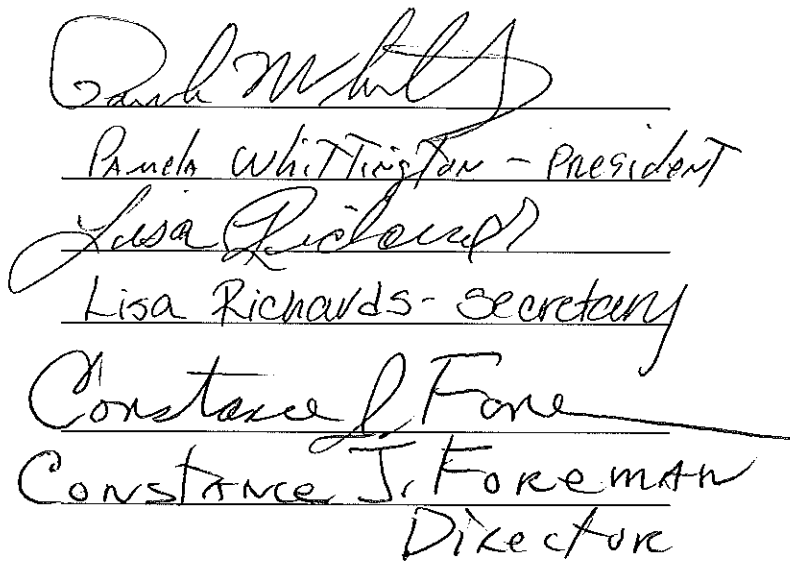 Pamela Whittington - President
Lisa Richards
Lisa Richards - Secretary
Constance J. Fore
Constance J. Foreman
Director